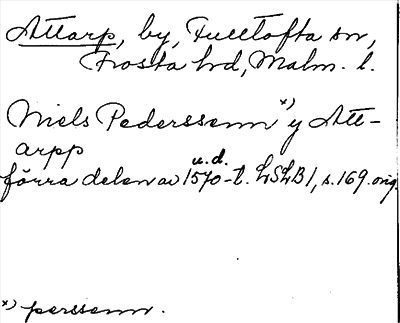 Attarp, by, Fulltofta sn,
Frosta hd, Malm. l.
Niels Pederssenn x) y Att-
arpp
u.d.
förra delen av 1570-t. LSLB 1, s. 169. orig.
x) perssenn.